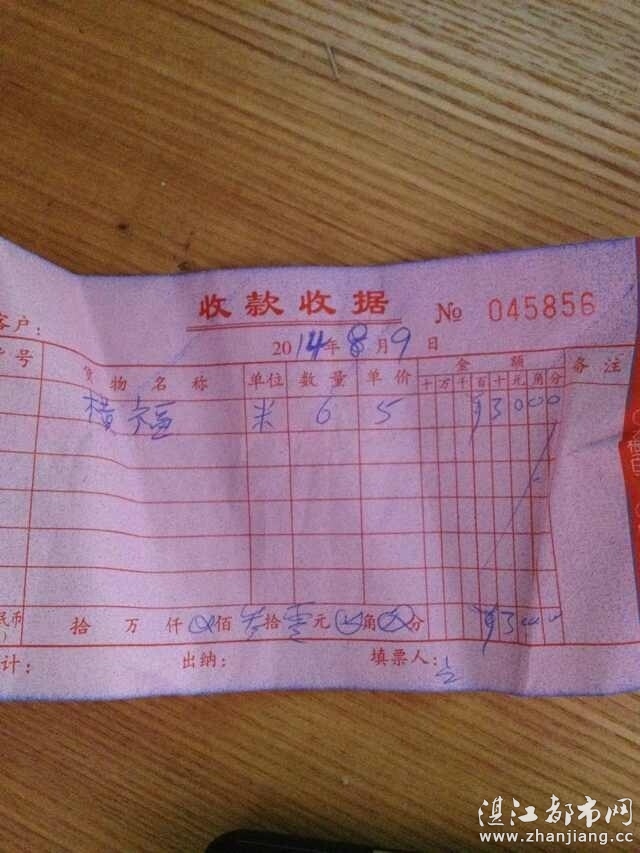 收款收据 № 045856
客户：
2014年8月9日
号 货物名称 单位 数量 单价 金额 备注
十 万 千 百 十 元 角 分
横福 米 6 5 ¥3000
拾 万 仟 佰 叁拾 元 角 分 ¥3000
计： 出纳： 填票人：
湛江都市网
www.zhanjiang.cc